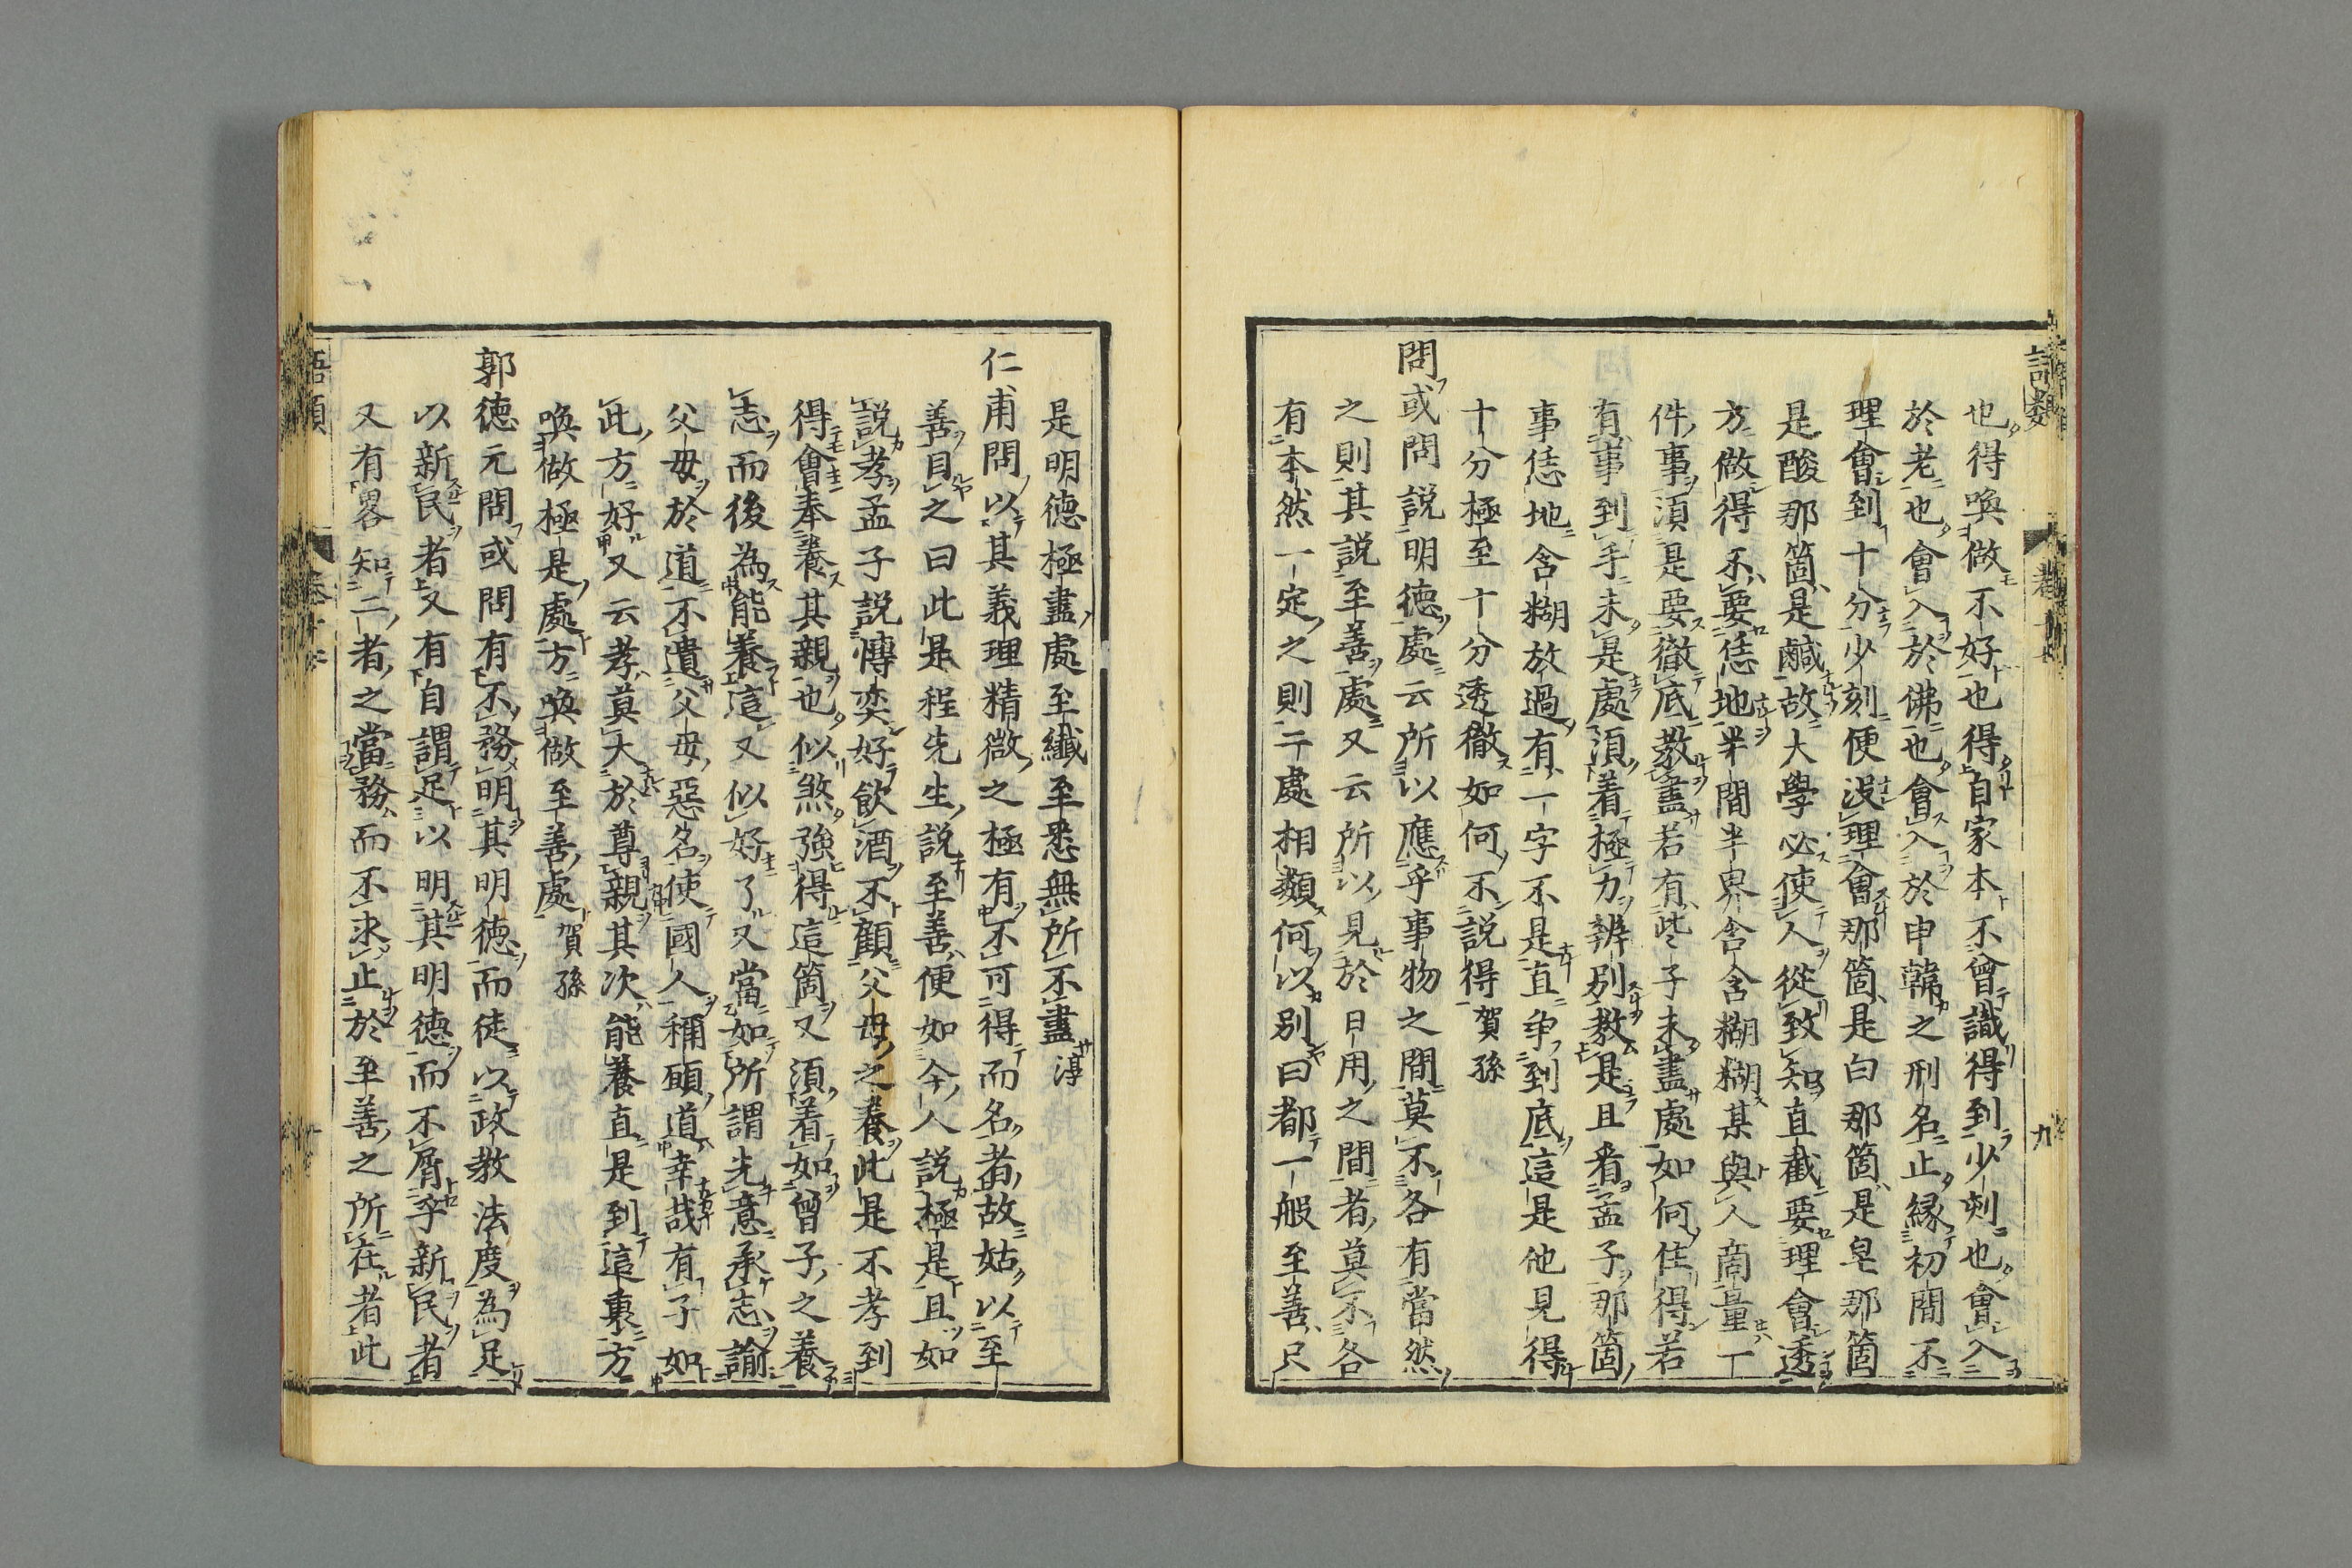 語類
卷十七
九
也得喚做不好也得自家本不曾識得到少刻也會入
於老也會入於佛也會入於申韓之刑名止緣初間不
理會到十分少刻便沒理會那箇是白那箇是皂那箇
是酸那箇是鹹故大學必使人從致知直截要理會透
方做得不要恁地半間半界含含糊糊某與人商量一
件事須是要徹底教盡若有些子未盡處如何住得若
有事到手未是處須着極力辨別教是且看孟子那箇
事恁地含糊放過有一字不是直爭到底這是他見得
十分極至十分透徹如何不說得賀孫
問或問說明德處云所以應乎事物之間莫不各有當然
之則其說至善處又云所以見於日用之間者莫不各
有本然一定之則二處相類何以別曰都一般至善只
是明德極盡處至纖至悉無所不盡淳
仁甫問以其義理精微之極有不可得而名者故姑以至
善目之曰此是程先生說至善便如今人說極是且如
說孝孟子說博奕好飲酒不顧父母之養此是不孝到
得會奉養其親也似煞強得這箇又須着如曾子之養
志而後為能養這又似好了又當如所謂先意承志諭
父母於道不遺父母惡名使國人稱願道幸哉有子如
此方好又云孝莫大於尊親其次能養直是到這裏方
喚做極是處方喚做至善處賀孫
郭德元問或問有不務明其明德而徒以政教法度為足
以新民者又有自謂足以明其明德而不屑乎新民者
又有畧知二者之當務而不求止於至善之所在者此
語類
卷十七